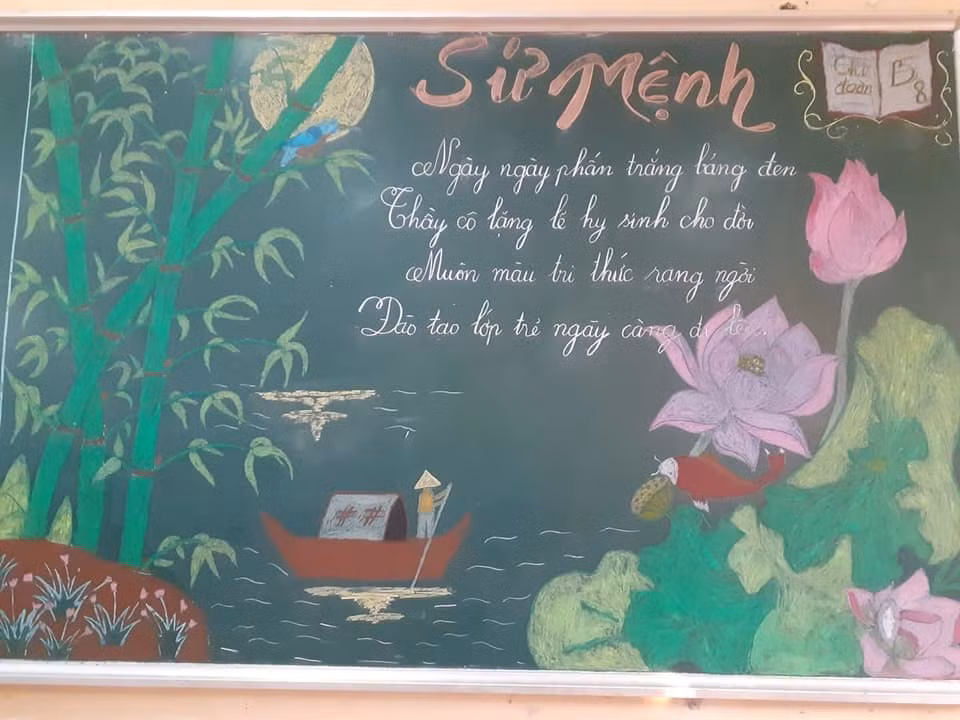 Sứ Mệnh
Chi
đoàn
B8
Ngày ngày phấn trắng bảng đen
Thầy cô lặng lẽ hy sinh cho đời
Muôn màu tri thức rạng ngời
Đào tạo lớp trẻ ngày càng đi